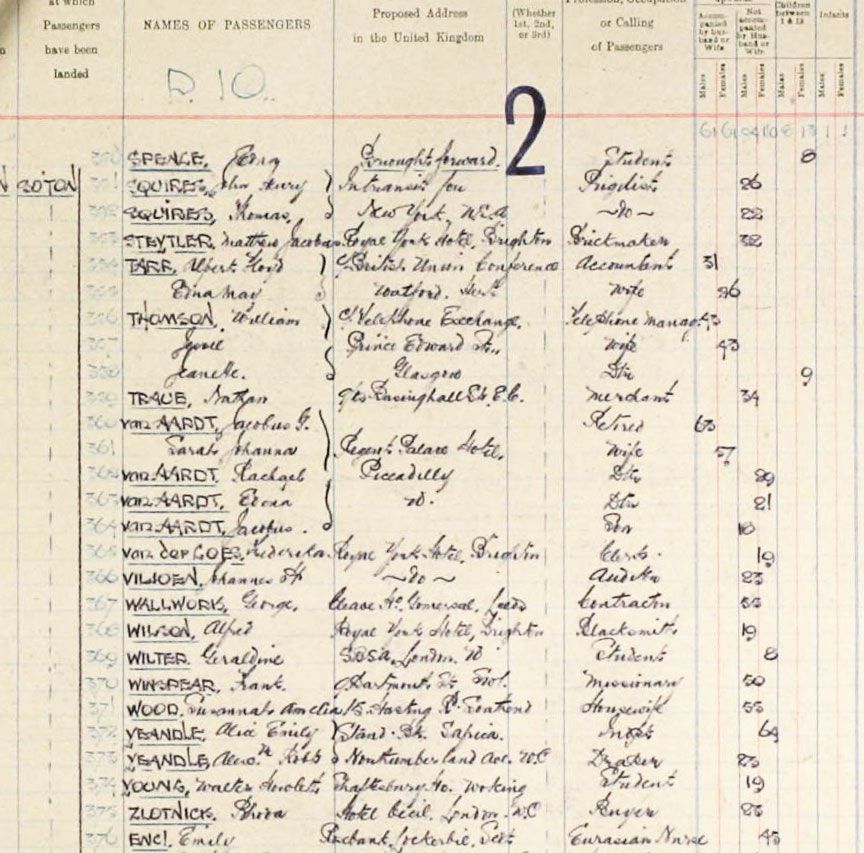 at which Passengers have been landed
NAMES OF PASSENGERS
Proposed Address in the United Kingdom
(Whether 1st, 2nd, or 3rd)
Profession, Occupation or Calling of Passengers
Accompanied by husband or Wife
Not accompanied by Husband or Wife
Children between 1 & 12
Infants
Males Females Males Females Males Females Males Females
P. 10.
2
350 SPENCE, Brought forward. Student 8
SOTON 351 SQUIRES, John Henry In transit for 26
352 SQUIRES, Thomas, New York, U.S.A ~do~ 22
353 STEYTLER, Matthew Jacobus Royal York Hotel, Brighton Brickmaker 32
354 TARR, Albert Floyd C/o British Union Conference Accountant 31
355 Edna May Watford. Herts Wife 26
356 THOMSON, William C/o Telephone Exchange, Telephone Manag.
357 Prince Edward St., Wife 43
358 Jeanette. Glasgow Dtr 9
359 TRAUB, Nathan Basinghall St. E.C. Merchant 34
360 van AARDT, Jacobus G. Retired 63
361 Sarah Johanna Regent Palace Hotel, Wife 57
362 van AARDT, Rachael Piccadilly Dtr 29
363 van AARDT, W. Dtr 21
364 van AARDT, Jacobus. Son 18
365 van der GOES, Frederika Royal York Hotel, Brighton Clerk. 19
366 VILJOEN, Johannes H ~do~ Auditor 23
367 WALLWORK, George, Cleave Ho. Gomersal, Leeds Contractor 55
368 WILSON, Alfred Royal York Hotel, Brighton Blacksmith 19
369 WILTER. Geraldine London. W Student 8
370 WINSPEAR, Frank. Dartmouth St. Missionary 50
371 WOOD, Susannah Amelia 15 Hasting Rd. Southend Housewife 55
372 YEANDLE, Alice Emily Stand. Bk. Safrica. 64
373 YEANDLE, Robb Northumberland Ave. W.C Draper 23
374 YOUNG, Walter Howlett Shaftesbury Ho. Working Student 19
375 ZLOTNICK. Rhoda Hotel Cecil. London. W.C Buyer 23
376 ENCI. Emily Rosebank, Lockerbie, Scot Eurasian Nurse 45